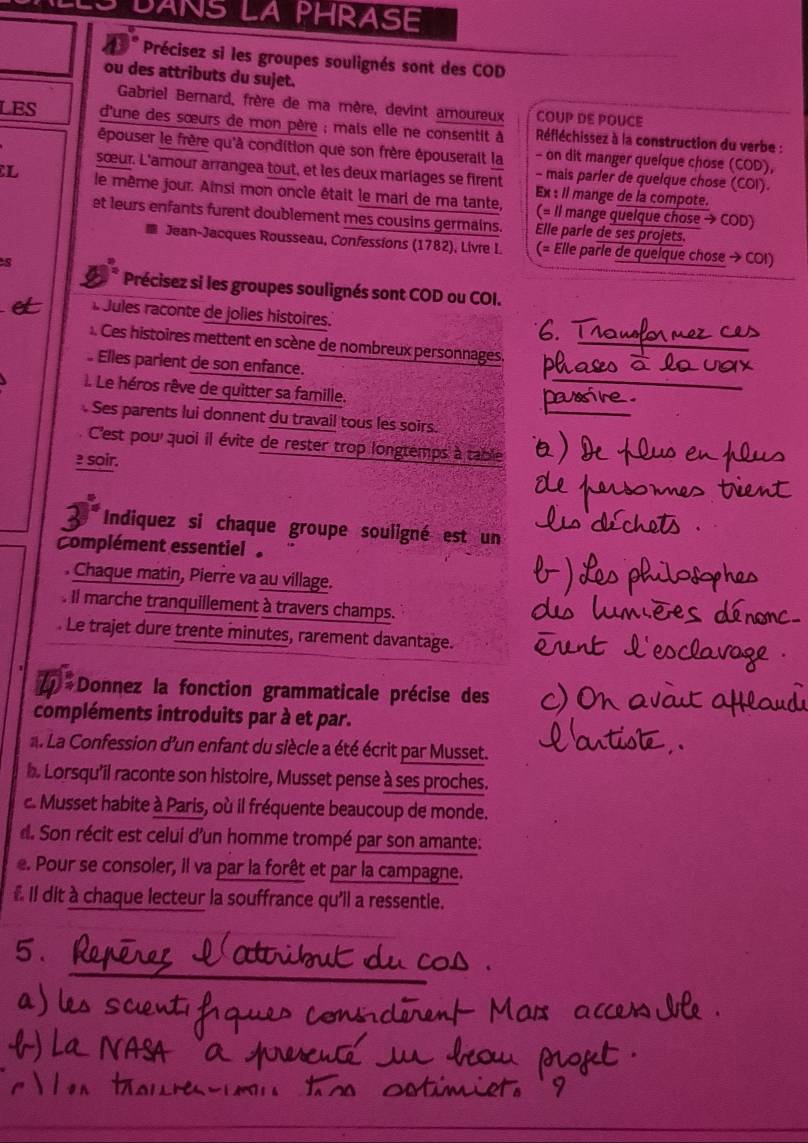 DANS LA PHRASE
Précisez si les groupes soulignés sont des COD
ou des attributs du sujet.
Gabriel Bernard, frère de ma mère, devint amoureux
d'une des sœurs de mon père ; mais elle ne consentit à
épouser le frère qu'à condition que son frère épouserait la
sœur. L'amour arrangea tout, et les deux mariages se firent
le même jour. Ainsi mon oncle était le mari de ma tante,
et leurs enfants furent doublement mes cousins germains.
Jean-Jacques Rousseau, Confessions (1782), Livre I.
LES
EL
es
et
COUP DE POUCE
Réfléchissez à la construction du verbe :
- on dit manger quelque chose (COD),
- mais parler de quelque chose (COI).
Ex : Il mange de la compote.
(= Il mange quelque chose → COD)
Elle parle de ses projets.
(= Elle parle de quelque chose → COI)
Précisez si les groupes soulignés sont COD ou COI.
Jules raconte de jolies histoires.
Ces histoires mettent en scène de nombreux personnages.
Elles parlent de son enfance.
Le héros rêve de quitter sa famille.
Ses parents lui donnent du travail tous les soirs.
C'est pourquoi il évite de rester trop longtemps à table
e soir.
3 Indiquez si chaque groupe souligné est un
complément essentiel .
. Chaque matin, Pierre va au village.
. Il marche tranquillement à travers champs.
. Le trajet dure trente minutes, rarement davantage.
4 Donnez la fonction grammaticale précise des
compléments introduits par à et par.
a. La Confession d'un enfant du siècle a été écrit par Musset.
b. Lorsqu'il raconte son histoire, Musset pense à ses proches.
c. Musset habite à Paris, où il fréquente beaucoup de monde.
d. Son récit est celui d'un homme trompé par son amante.
e. Pour se consoler, il va par la forêt et par la campagne.
f. Il dit à chaque lecteur la souffrance qu'il a ressentie.
5. Repérez l'attribut du COD.
a) les scientifiques considèrent Mars accessible.
b) La NASA a présenté un beau projet.
6. Transformez ces
phases à la voix
passive.
a) De plus en plus
de personnes trient
les déchets.
b-) Les philosophes
des lumières dénonc-
èrent l'esclavage.
c) On avait applaudi
l'artiste..